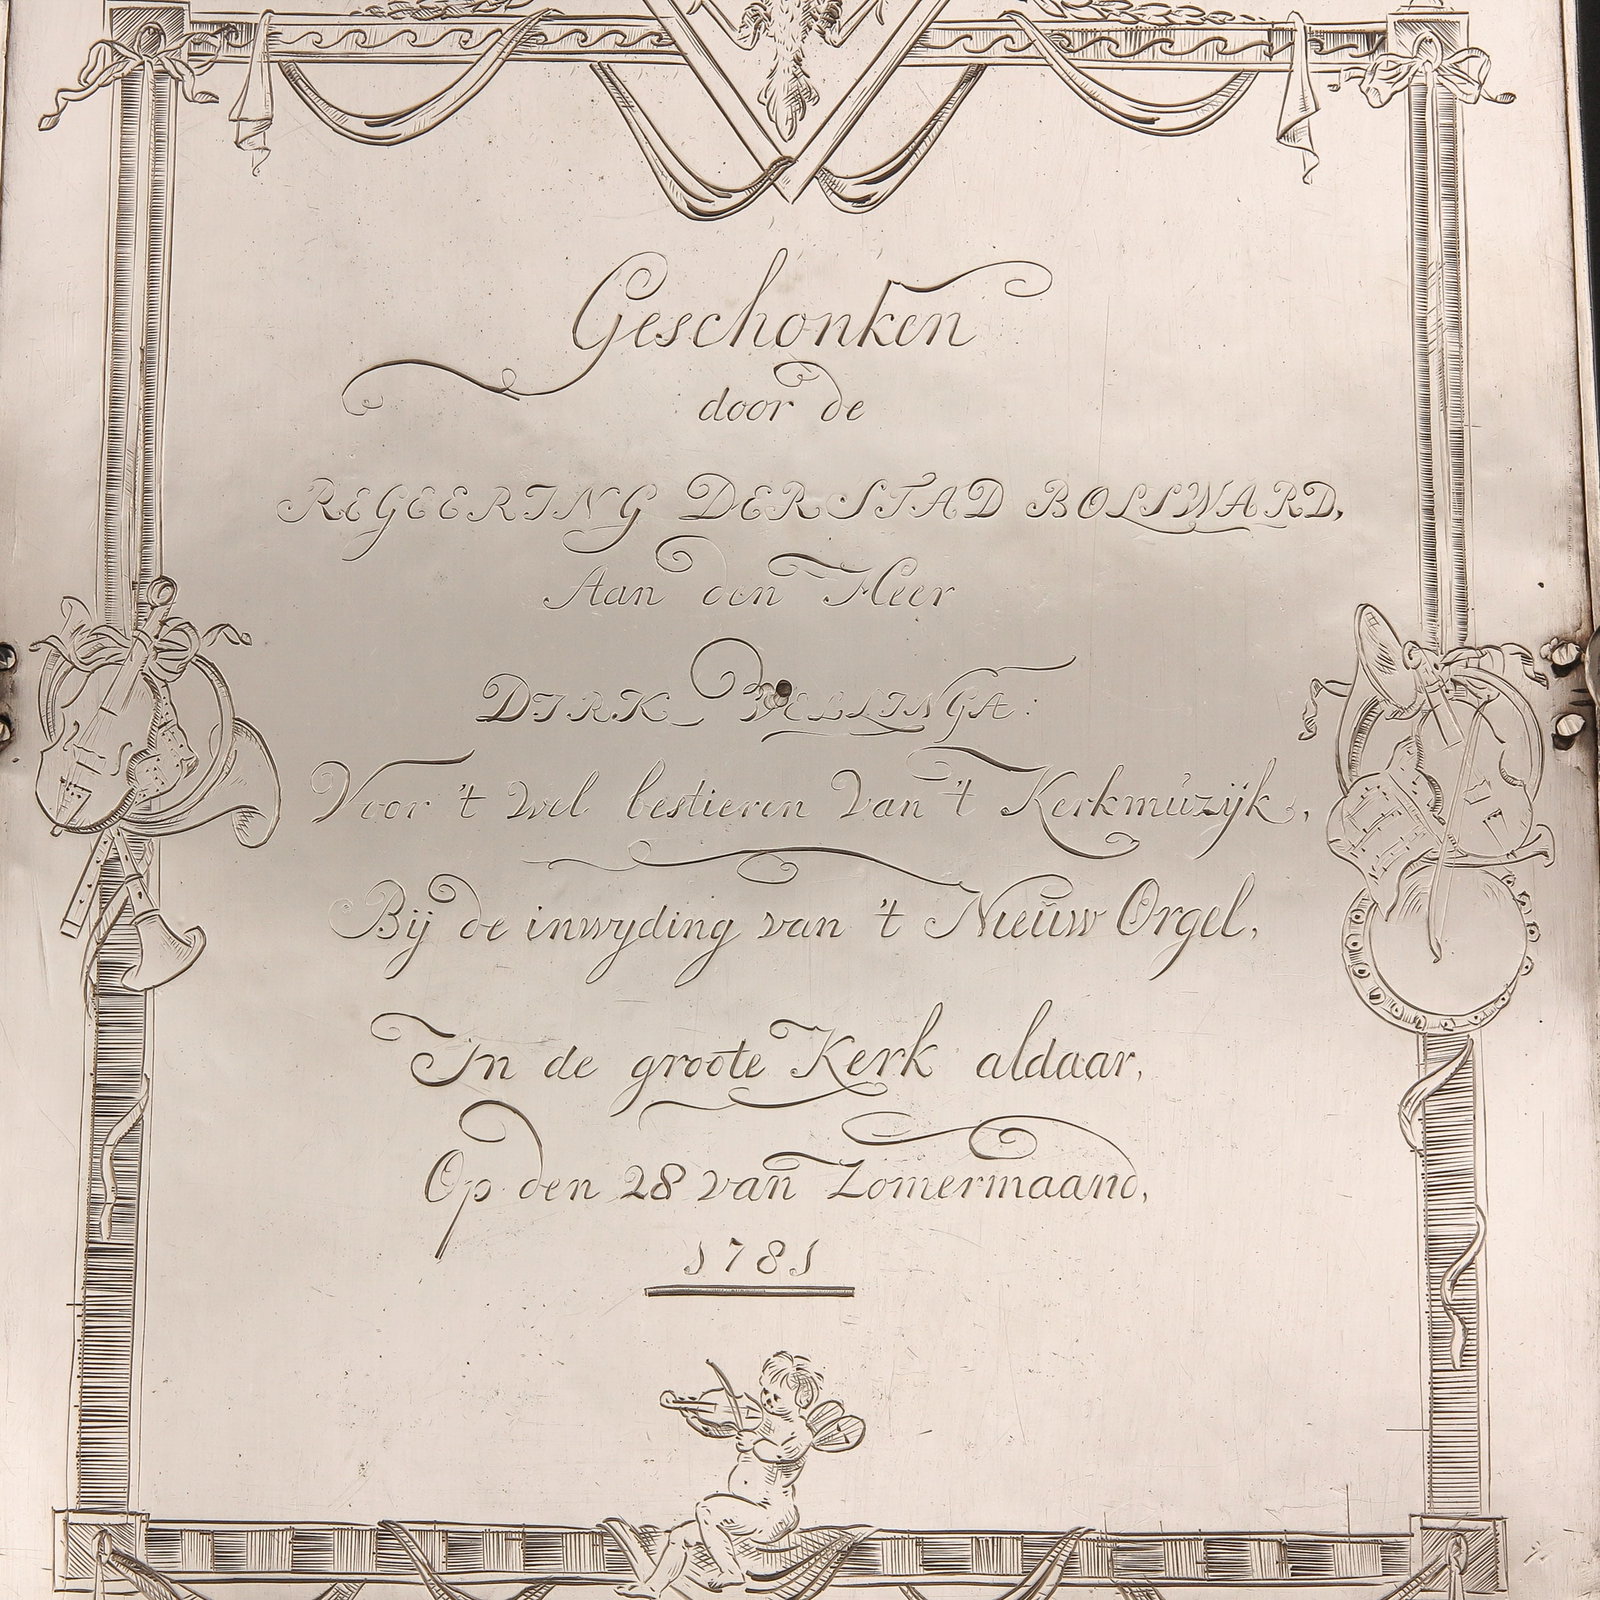 Geschonken
door de
REGEERING DER STAD BOLSWARD,
Aan den Heer
DIRK BELLINGA:
Voor 't wel bestieren van 't Kerkmuzijk,
Bij de inwyding van 't Nieuw Orgel,
In de groote Kerk aldaar,
Op den 28 van Zomermaand,
1781